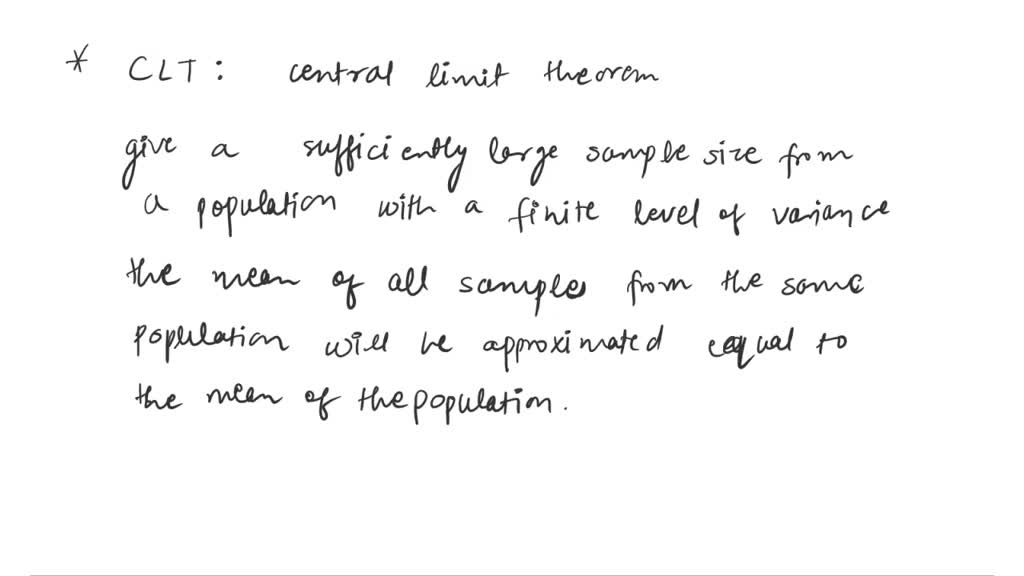 * CLT: central limit theorem
give a sufficiently large sample size from
a population with a finite level of variance
the mean of all samples from the same
population will be approximated equal to
the mean of the population.